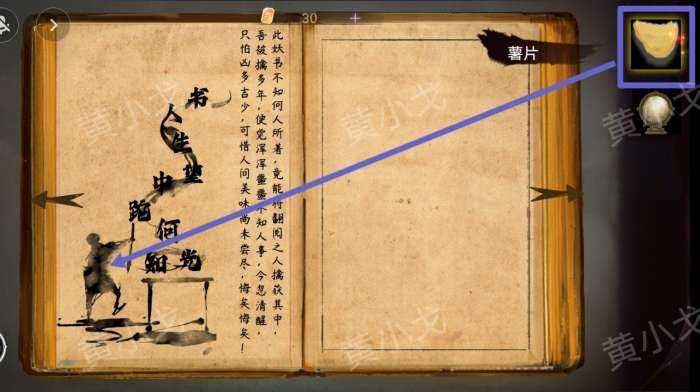 30
薯片
此妖书不知何人所著，竟能将翻阅之人擒获其中，
吾被擒多年，使觉浑浑噩噩不知人事，今忽清醒，
只怕凶多吉少，可惜人间美味尚未尝尽，悔矣悔矣！
书
人生望
中
蹈何
知党
黄小戈
黄小戈
黄小戈
黄小戈
黄小戈
黄小戈